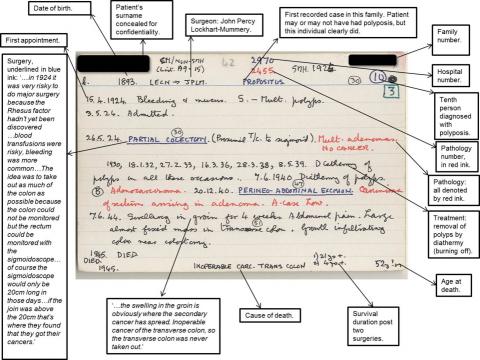 Date of birth.
Patient's
surname
concealed for
confidentiality.
Surgeon: John Percy
Lockhart-Mummery.
First recorded case in this family. Patient
may or may not have had polyposis, but
this individual clearly did.
First appointment.
Family
number.
Hospital
number.
Tenth
person
diagnosed
with
polyposis.
Pathology
number,
in red ink.
Pathology:
all denoted
by red ink.
Treatment:
removal of
polyps by
diathermy
(burning off).
Age at
death.
Surgery,
underlined in blue
ink: '…in 1924 it
was very risky to
do major surgery
because the
Rhesus factor
hadn't yet been
discovered
…blood
transfusions were
risky, bleeding
was more
common…The
idea was to take
out as much of the
colon as
possible because
the colon could
not be monitored
but the rectum
could be
monitored with
the
sigmoidoscope…
of course the
sigmoidoscope
would only be
20cm long in
those days…if the
join was above
the 20cm that's
where they found
that they got their
cancers.'
SM/NON-SM
62
2970
2455
SMH. 192
1893. LECN → JPLM.
PROPOSITUS
30
10
3
15.4.1924. Bleeding & mucus. S. - Mult. polyps.
3.5.24. Admitted.
30
26.5.24. PARTIAL COLECTOMY. (Proximal T/C. to sigmoid). Mult. adenomas.
NO CANCER.
1930, 18.1.32, 27.2.33, 16.3.36, 28.3.38, 8.5.39. Diathermy of
polyps on all these occasions. 7.6.1940 Diathermy of polyps.
B Adenocarcinoma. 20.12.40. PERINEO-ABDOMINAL EXCISION. Carcinoma
of rectum arising in adenoma. A-case Low.
7.6.44. Swelling in groin for 4 weeks. Abdominal pain. Large
almost fixed mass in transverse colon. Growth infiltrating
51
colon near colostomy.
1945. DIED
DIED
1945.
INOPERABLE CARC. TRANS COLON
1) 21yr+.
2) 4yr+.
52yr
'…the swelling in the groin is
obviously where the secondary
cancer has spread. Inoperable
cancer of the transverse colon, so
the transverse colon was
never taken out.'
Cause of death.
Survival
duration post
two
surgeries.